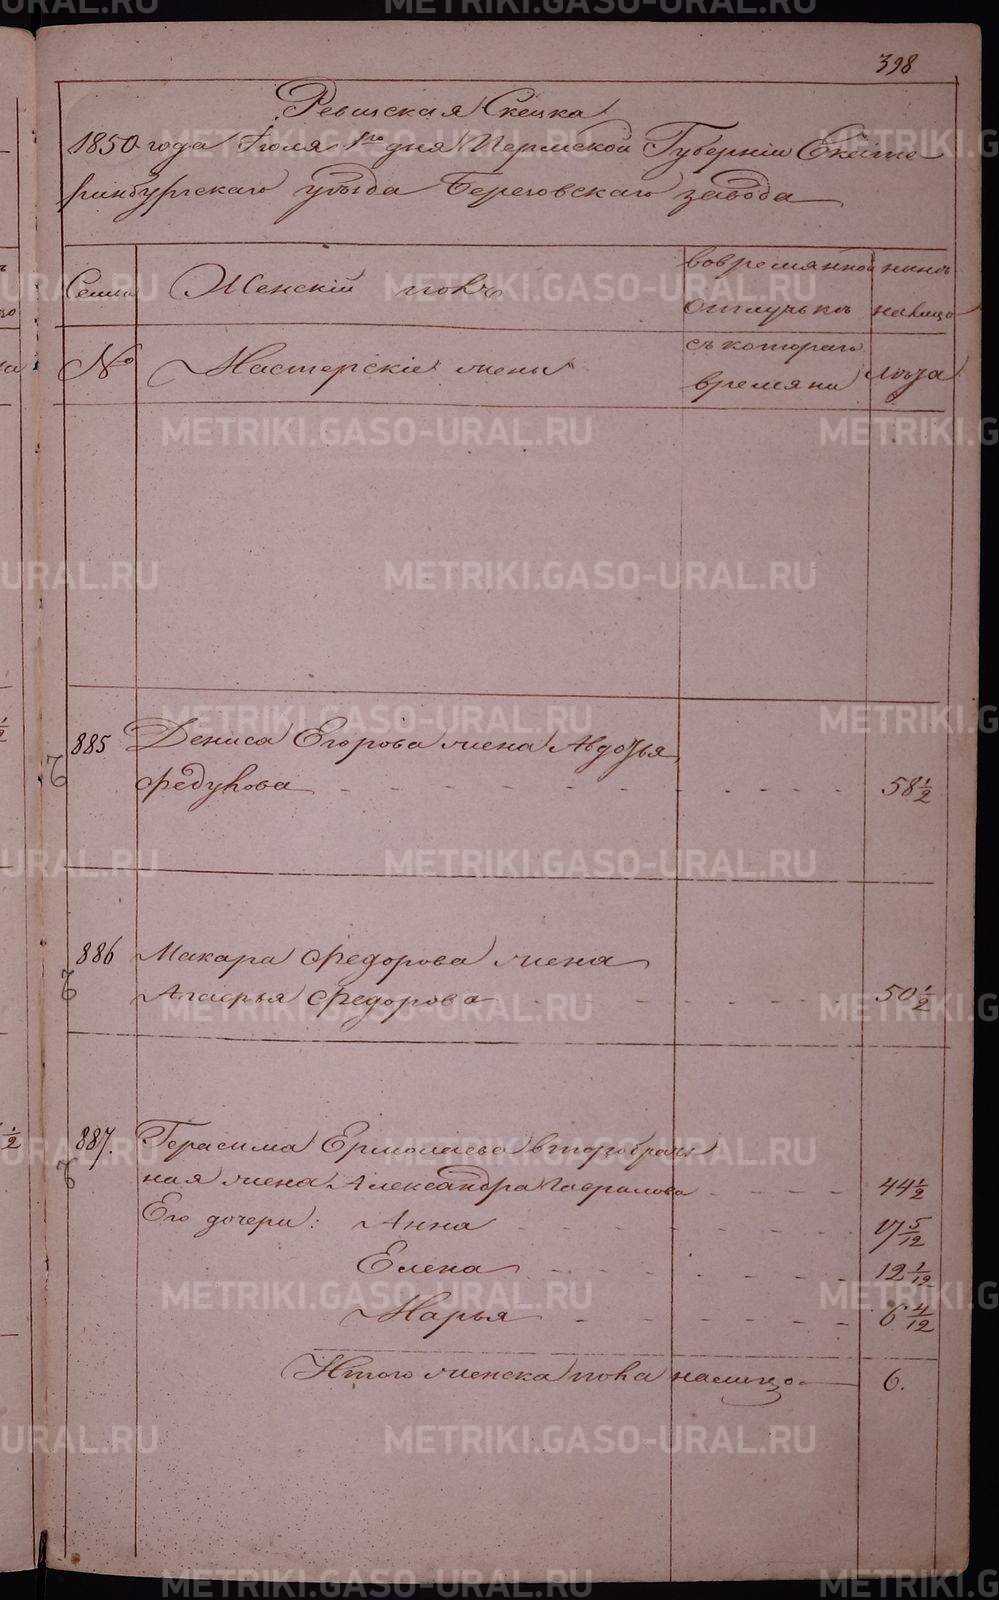 398
Ревизская Скаска
1850 года Июля 1го дня Пермской Губернiи Екате
ринбургскаго уѣзда Березовскаго завода
Семьи
Женскiй полъ
вовремянной
отлучькѣ
нынѣ
налицо
№
Мастерскiе жены
съ котораго
времяни
лѣта
885
Дениса Егорова жена Авдотья
Федулова
58 1/2
886
Макара Федорова жена
Агафья Федорова
50 1/2
887.
Герасима Ермолаева второбрач
ная жена Александра Гаврилова
44 1/2
Его дочери: Анна
17 5/12
Елена
12 1/12
Марья
6 4/12
Итого женска пола налицо
6.
METRIKI.GASO-URAL.RU